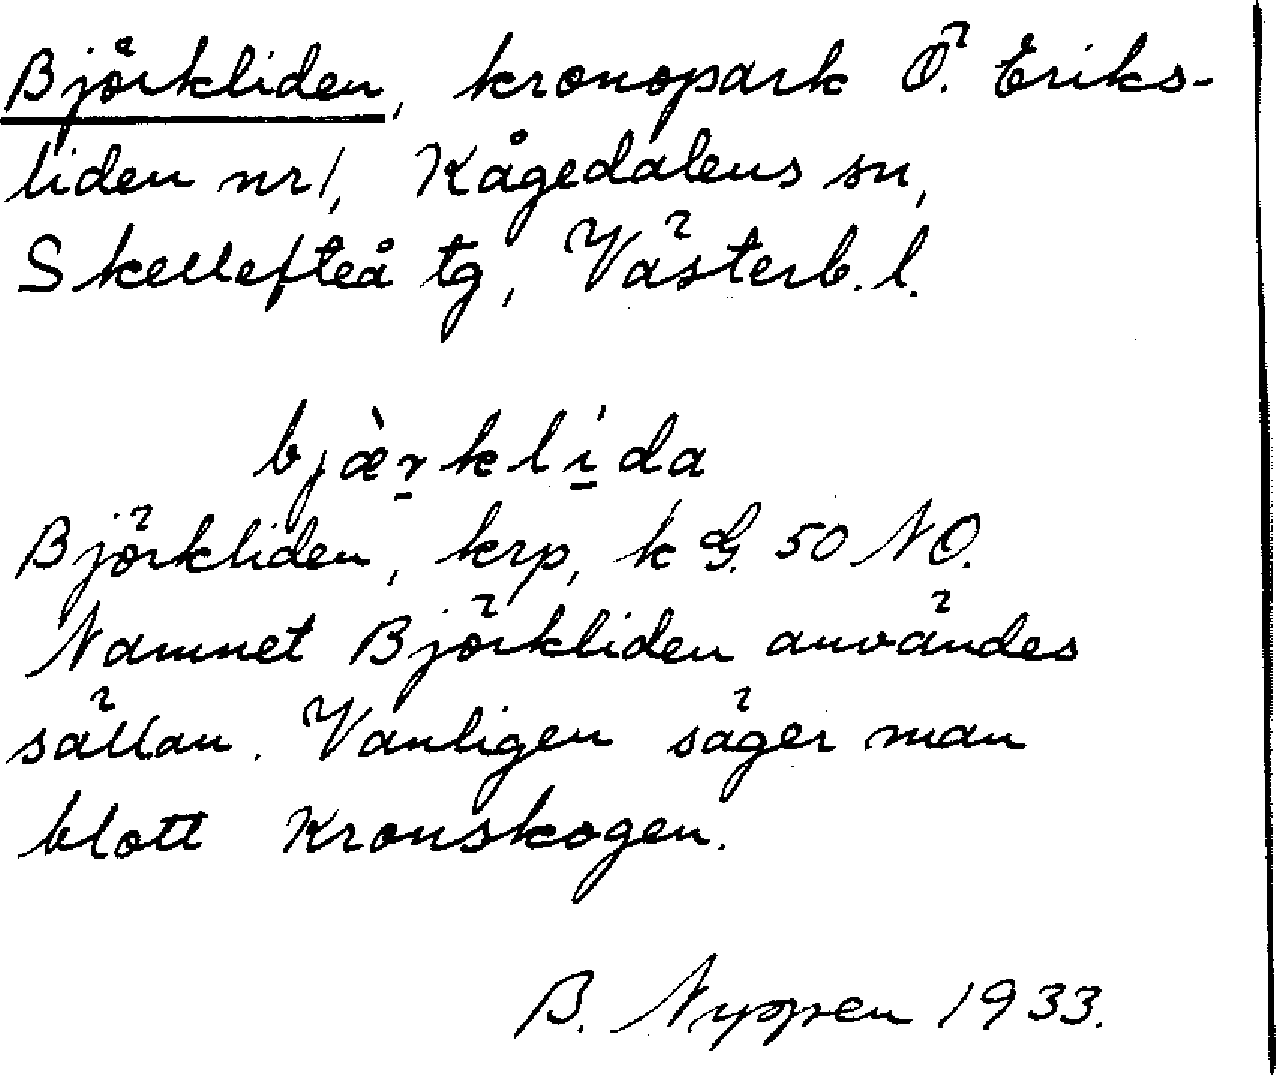 Björkliden, kronopark Ö. Eriks-
liden nr 1, Kågedalens sn,
Skellefteå tg, Västerb. l.
bjæ̀r̠klí̠da
Björkliden, krp, k G. 50 NO.
Namnet Björkliden användes
sällan. Vanligen säger man
blott Kronskogen.
B. Nyppen 1933.